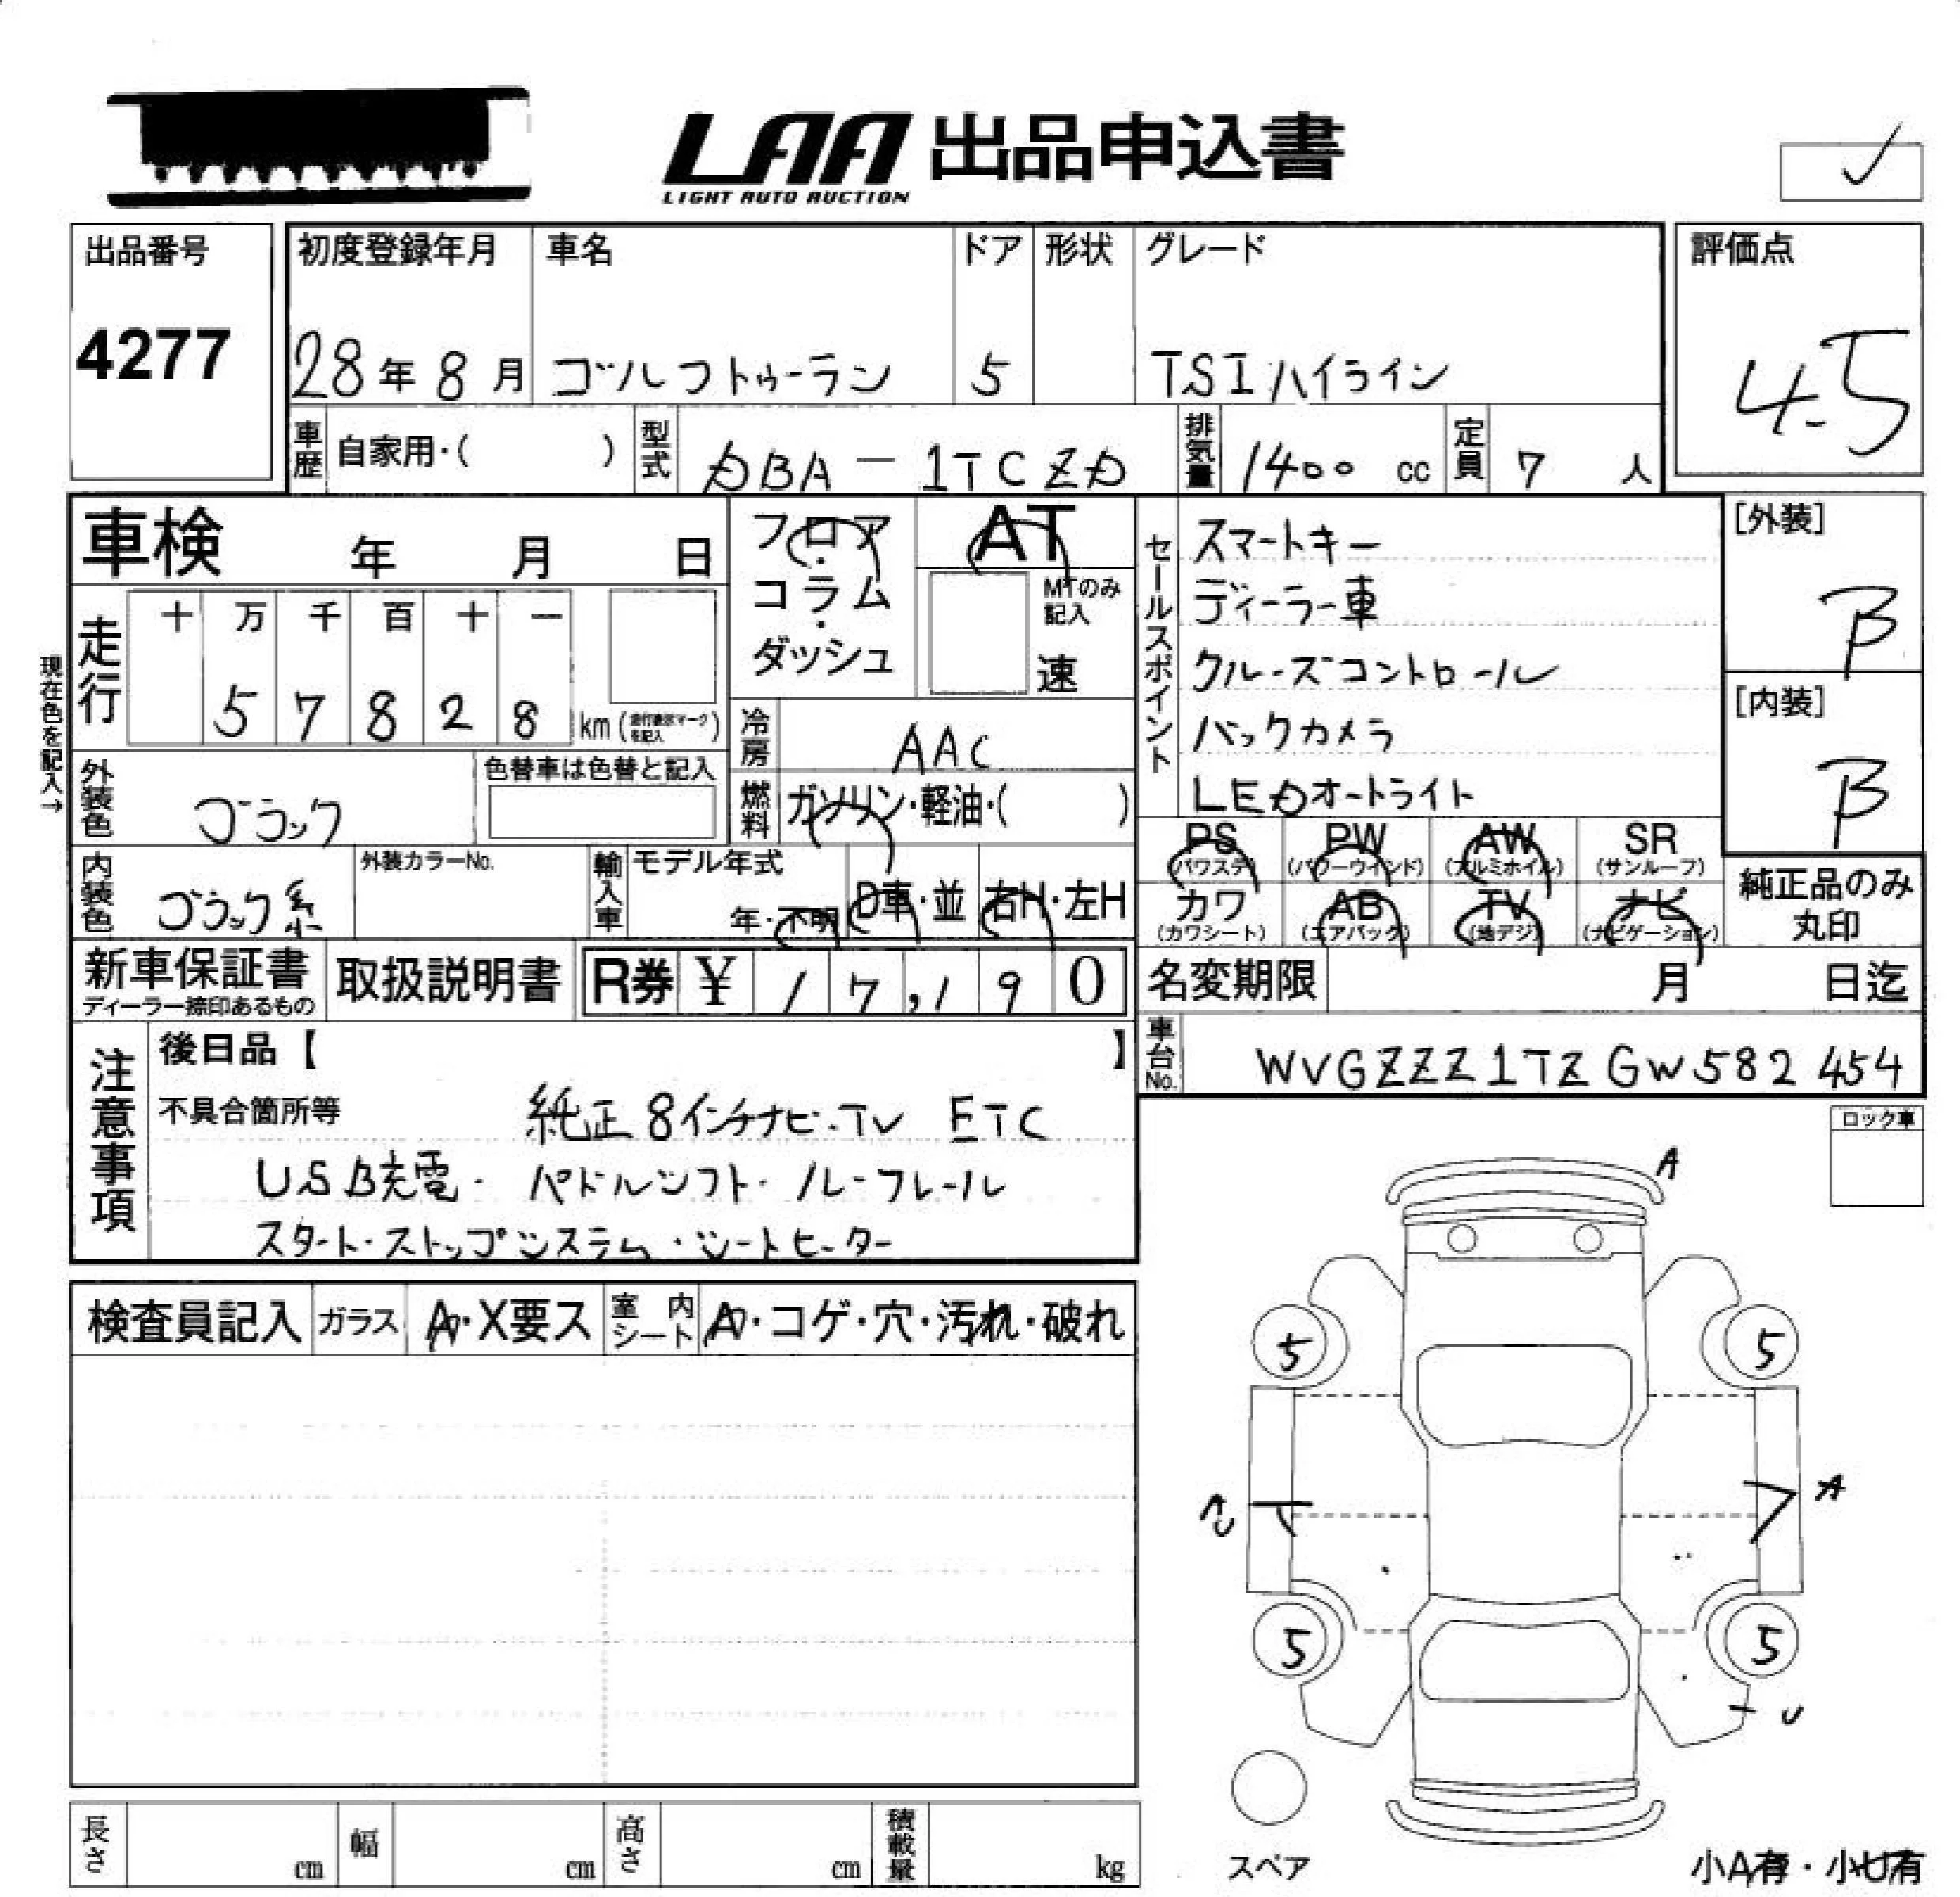 LAA 出品申込書
LIGHT AUTO AUCTION
出品番号
4277
初度登録年月
28年 8月
車名
ゴルフトゥーラン
ドア
5
形状
グレード
TSIハイライン
評価点
4.5
車歴
自家用・( )
型式
DBA-1TCZD
排気量
1400 cc
定員
7 人
車検 年 月 日
フロア・コラム・ダッシュ
AT
MTのみ記入
速
セールスポイント
スマートキー
ディーラー車
クルーズコントロール
バックカメラ
LEDオートライト
[外装]
B
[内装]
B
現在色を記入→
走行
十 万 千 百 十 一
5 7 8 2 8 km (走行表示マークを記入)
冷房
AAC
外装色
ブラック
色替車は色替と記入
燃料
ガソリン・軽油・( )
PS (パワステ)
PW (パワーウインド)
AW (アルミホイル)
SR (サンルーフ)
内装色
ブラック系
外装カラーNo.
輸入車
モデル年式
年・不明
D車・並
右H・左H
カワ (カワシート)
AB (エアバック)
TV (地デジ)
ナビ (ナビゲーション)
純正品のみ
丸印
新車保証書
ディーラー捺印あるもの
取扱説明書
R券 ¥ 17,190
名変期限 月 日迄
注意事項
後日品【 】
不具合箇所等
純正8インチナビ・TV ETC
USB充電・パドルシフト・ルーフレール
スタート・ストップシステム・シートヒーター
車台No.
WVGZZZ1TZGW582454
ロック車
検査員記入
ガラス
A・X要ス
室内シート
A・コゲ・穴・汚れ・破れ
A
5
5
A
5
5
U
スペア
小A有・小U有
長さ cm
幅 cm
高さ cm
積載量 kg